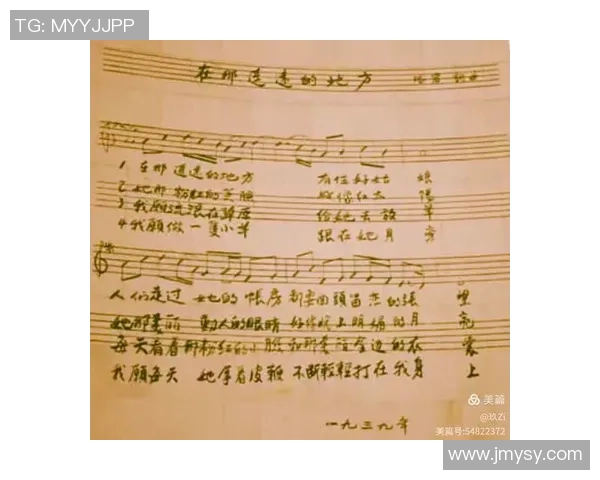 TG: MYYJJPP
在那遥远的地方 洛宾 编曲
1. 在那遥远的地方 有位好姑 娘
2. 她那粉红的笑脸 好像红太 阳
3. 我愿流浪在草原 给她去放 羊
4. 我愿做一隻小羊 跟在她身 旁
人们走过 她的帳房 都要回頭留恋的張 望
她那美丽 動人的眼睛 好像晚上明媚的月 亮
每天看着那粉红的小脸和那美丽金边的衣 裳
我愿每天 她拿着皮鞭 不断輕輕打在我身 上
一九三九年
美篇
@玖Zi
美篇号:54822372
www.jmysy.com